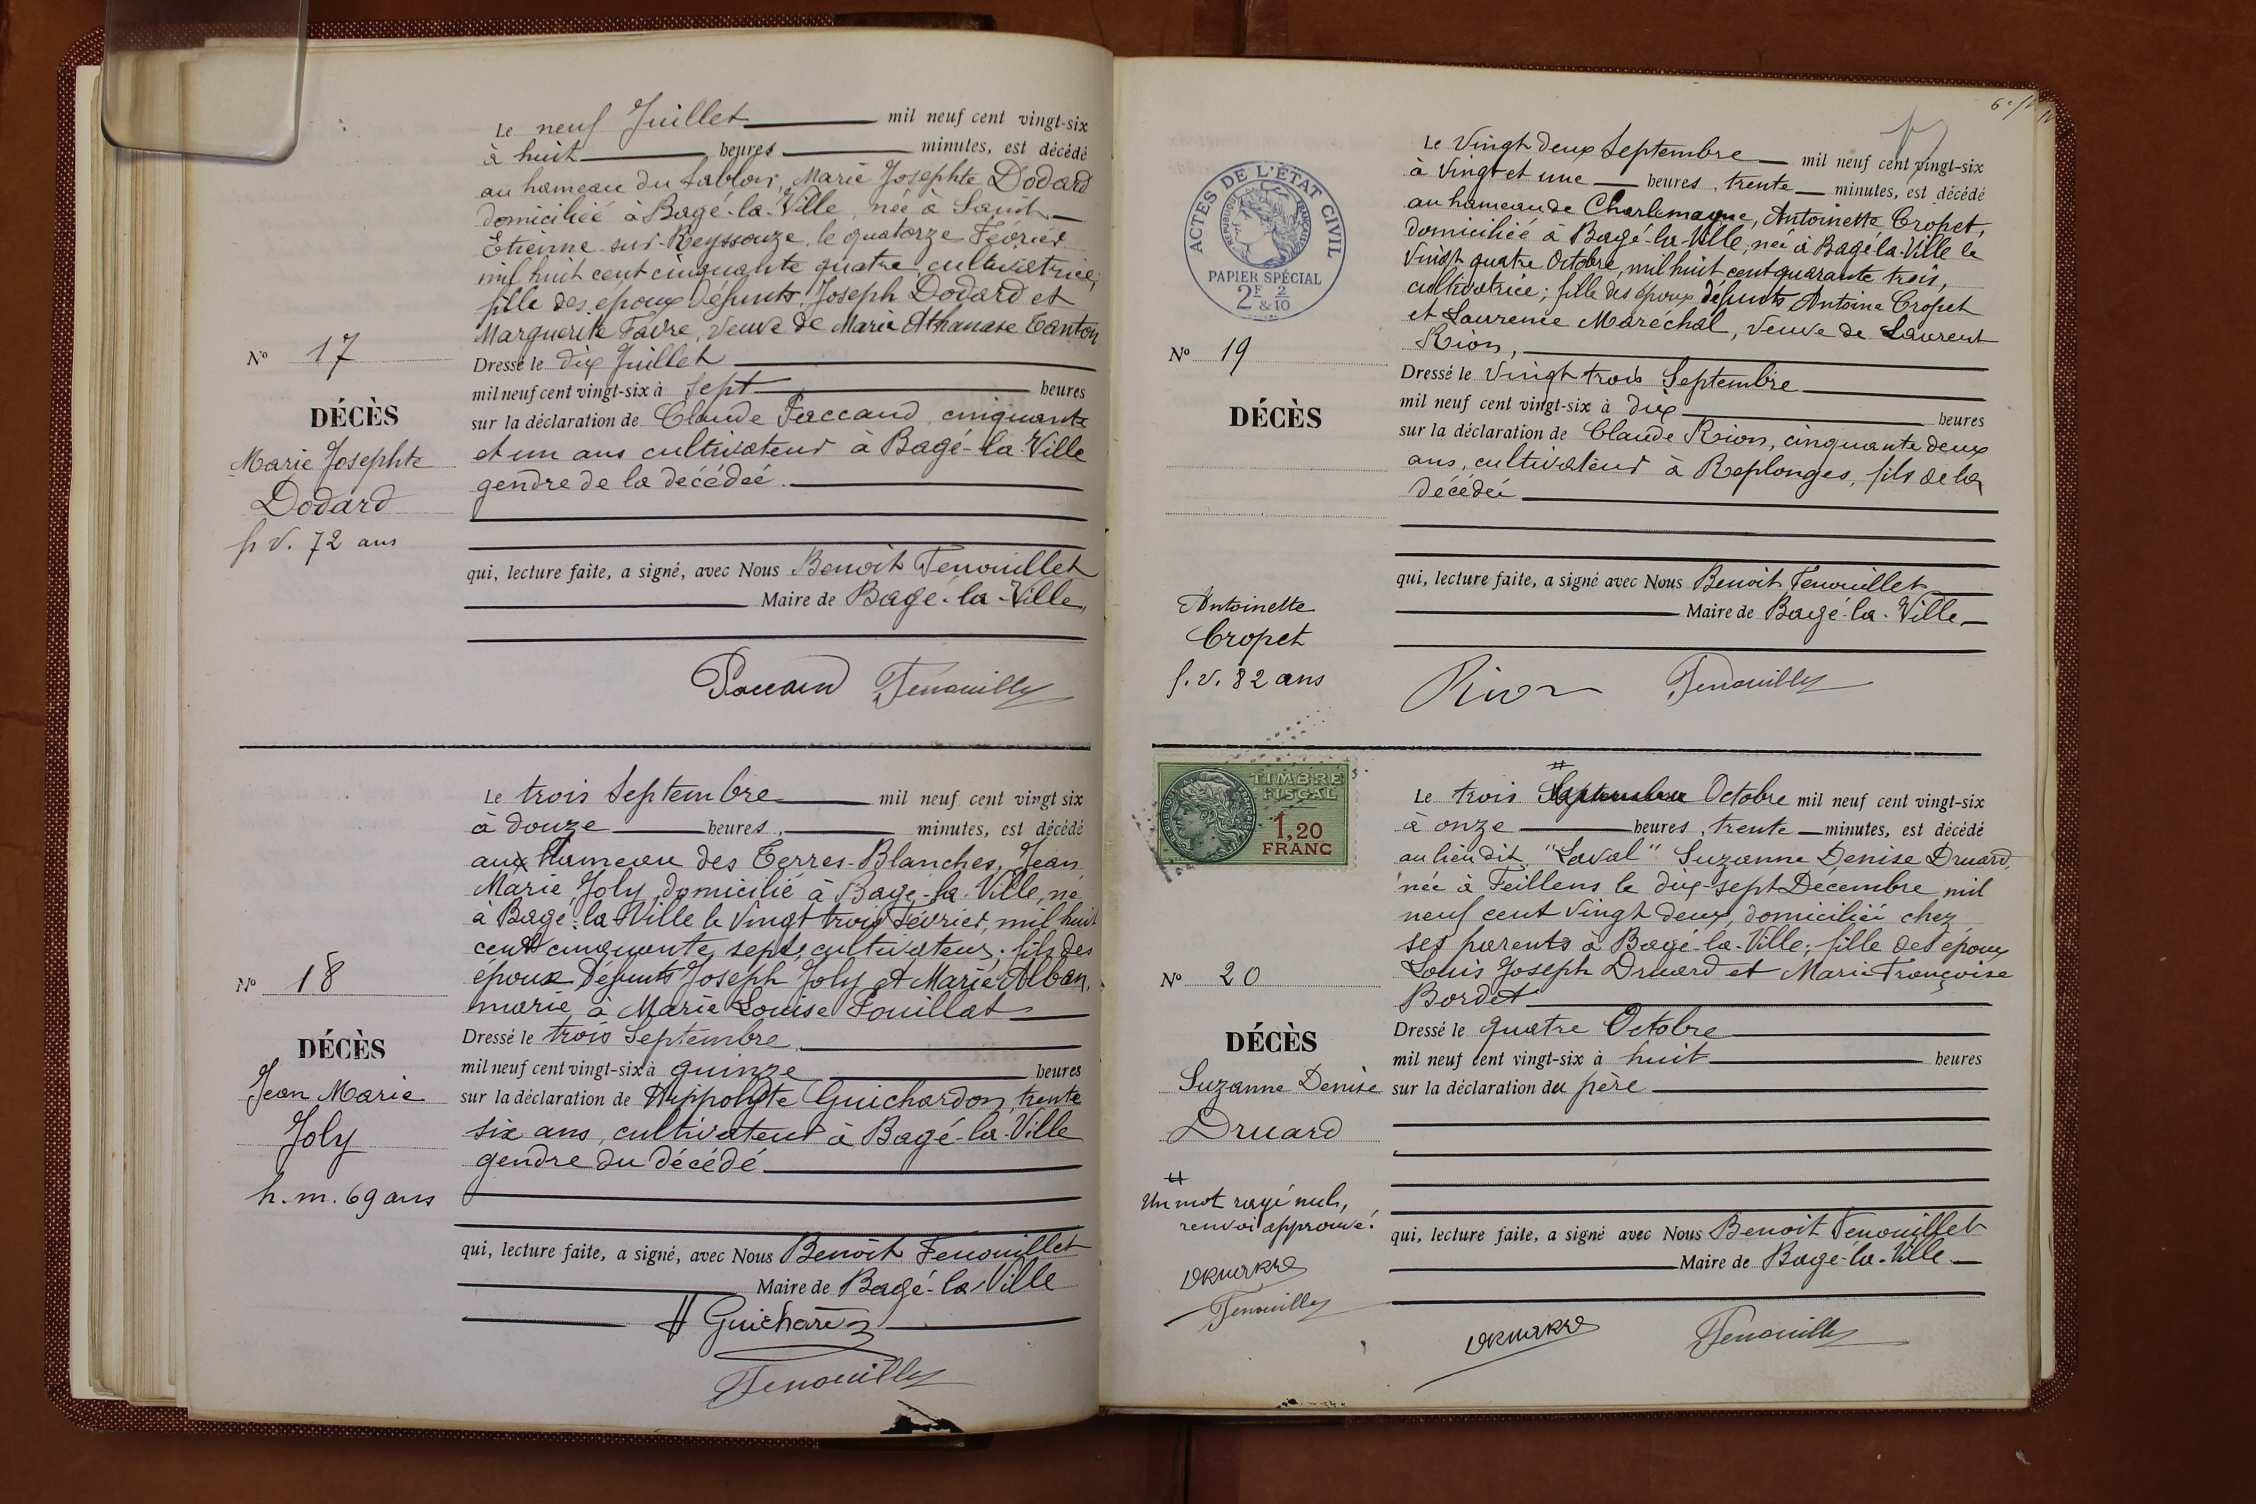 Le neuf Juillet mil neuf cent vingt-six
à huit heures minutes, est décédé
au hameau du Sablon, Marie Josephte Dodard
domiciliée à Bagé-la-Ville, née à Saint-
Etienne-sur-Reyssouze le quatorze Février
mil huit cent cinquante quatre, cultivatrice;
fille des époux défunts Joseph Dodard et
Marguerite Favre, Veuve de Marie Athanase Canton
N° 17
Dressé le dix Juillet
mil neuf cent vingt-six à sept heures
DÉCÈS
sur la déclaration de Claude Paccaud, cinquante
et un ans cultivateur à Bagé-la-Ville
gendre de la décédée.
Marie Josephte
Dodard
f. v. 72 ans
qui, lecture faite, a signé, avec Nous Benoît Fenouillet
Maire de Bagé-la-Ville,
Paccaud Fenouillet
Le trois Septembre mil neuf cent vingt six
à douze heures, minutes, est décédé
aux hameau des Terres-Blanches, Jean
Marie Joly, domicilié à Bagé-la-Ville, né
à Bagé-la-Ville le Vingt trois Février, mil huit
cent cinquante sept, cultivateur; fils des
époux défunts Joseph Joly et Marie Alban,
marié à Marie Louise Pouillat
N° 18
Dressé le trois Septembre
mil neuf cent vingt-six à quinze heures
DÉCÈS
sur la déclaration de Hippolyte Guichardon, trente
six ans, cultivateur à Bagé-la-Ville
gendre du décédé
Jean Marie
Joly
h. m. 69 ans
qui, lecture faite, a signé, avec Nous Benoît Fenouillet
Maire de Bagé-la-Ville
H Guichardon
Fenouillet
ACTES DE L'ÉTAT CIVIL
RÉPUBLIQUE FRANÇAISE
PAPIER SPÉCIAL
2F 2/10
&
Le Vingt deux Septembre mil neuf cent vingt-six
à Vingt et une heures, trente minutes, est décédé
au hameau de Charlemagne, Antoinette Cropet,
domiciliée à Bagé-la-Ville, née à Bagé-la-Ville le
Vingt quatre Octobre, mil huit cent quarante trois,
cultivatrice; fille des époux défunts Antoine Cropet
et Laurence Maréchal, Veuve de Laurent
Rion,
N° 19
Dressé le Vingt trois Septembre
mil neuf cent vingt-six à dix heures
DÉCÈS
sur la déclaration de Claude Rion, cinquante deux
ans, cultivateur à Replonges, fils de la
décédée
qui, lecture faite, a signé avec Nous Benoît Fenouillet
Maire de Bagé-la-Ville
Antoinette
Cropet
f. v. 82 ans
Rion Fenouillet
TIMBRE
FISCAL
1,20
FRANC
Le trois Septembre Octobre mil neuf cent vingt-six
à onze heures, trente minutes, est décédé
au lieu dit "Laval" Suzanne Denise Druard,
née à Feillens le dix-sept Décembre mil
neuf cent vingt deux, domiciliée chez
ses parents à Bagé-la-Ville; fille des époux
Louis Joseph Druard et Marie Françoise
Bordet
N° 20
Dressé le quatre Octobre
mil neuf cent vingt-six à huit heures
DÉCÈS
sur la déclaration du père
Suzanne Denise
Druard
Un mot rayé nul,
renvoi approuvé.
Fenouillet
qui, lecture faite, a signé avec Nous Benoît Fenouillet
Maire de Bagé-la-Ville
Fenouillet